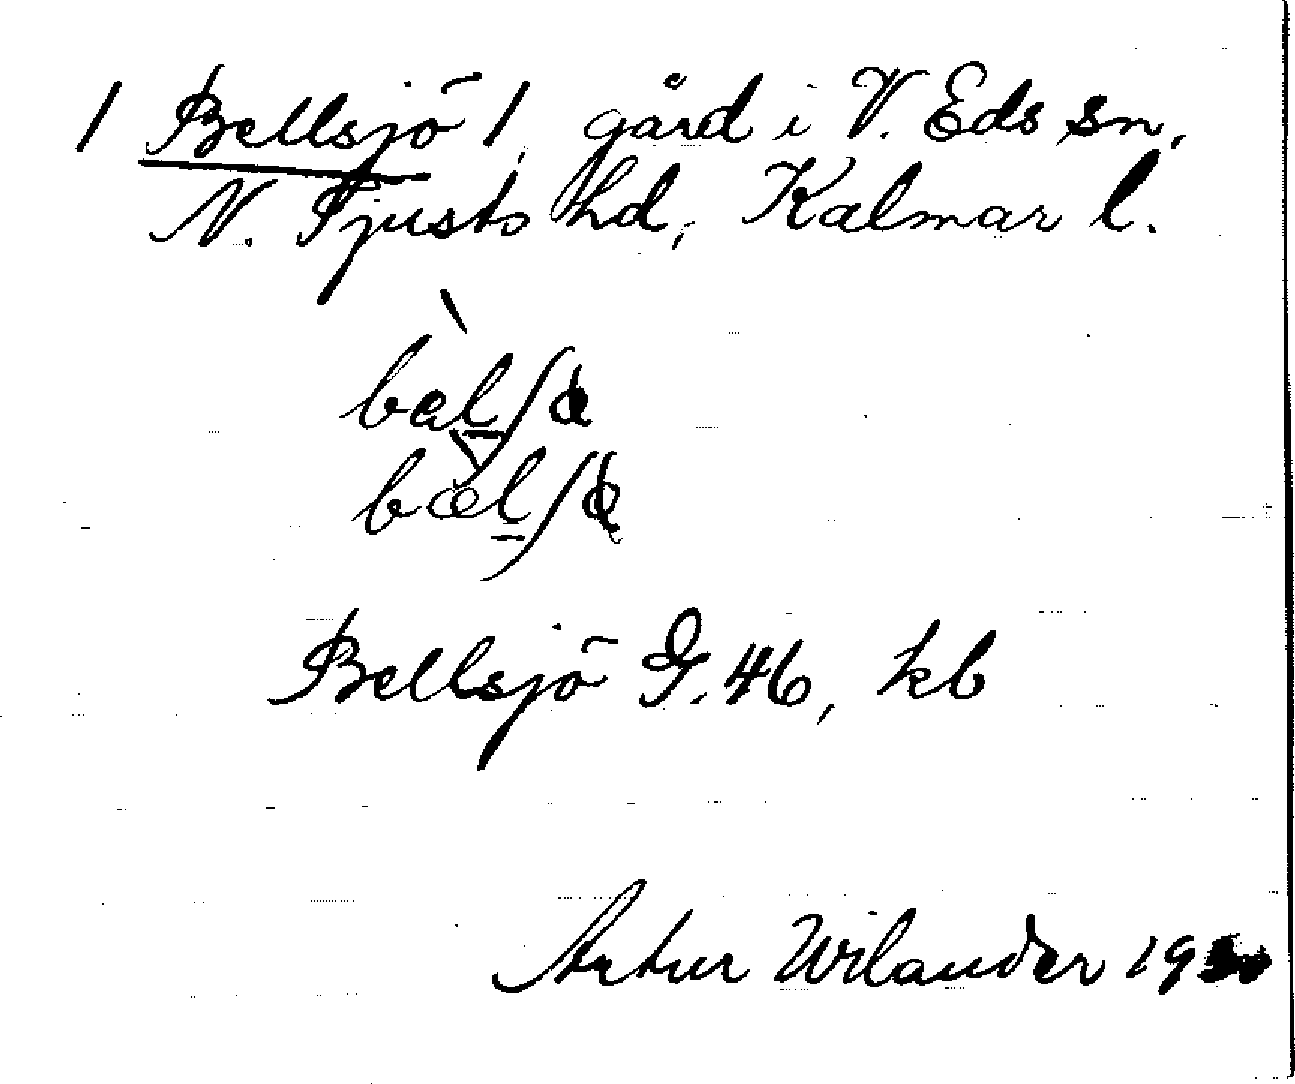 / Bellsjö /, gård i V. Eds sn,
N. Tjusts hd, Kalmar l.
Bellsjö G. 46, kb
Artur Wilander